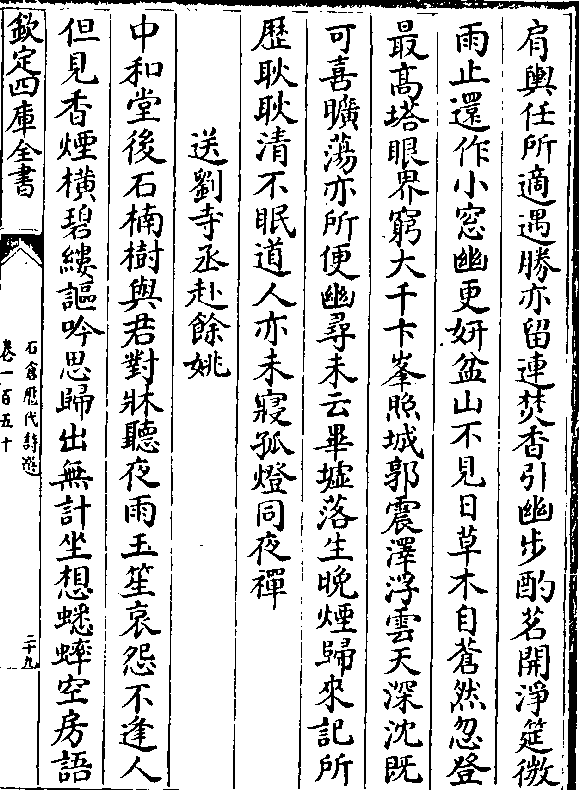 肩輿任所適遇勝亦留連焚香引幽步酌茗開淨筵微
雨止還作小窓幽更妍盆山不見日草木自蒼然忽登
最高塔眼界窮大千卞峯照城郭震澤浮雲天深沈既
可喜曠蕩亦所便幽尋未云畢墟落生晚煙歸來記所
歷耿耿清不眠道人亦未寢孤燈同夜禪
送劉寺丞赴餘姚
中和堂後石楠樹與君對牀聽夜雨玉笙哀怨不逢人
但見香煙橫碧縷謳吟思歸出無計坐想蟋蟀空房語
欽定四庫全書
石倉歷代詩選
卷一百五十
二十九